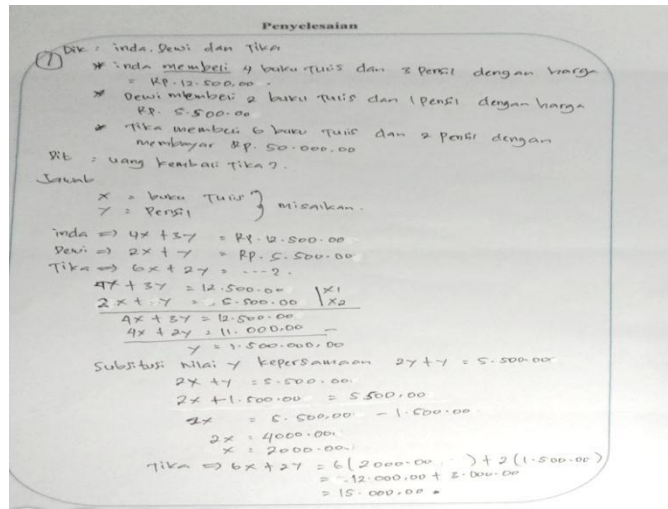 Penyelesaian
① Dik : inda, Dewi dan Tika
* inda membeli 4 buku Tulis dan 3 Pensil dengan harga
= Rp. 12.500.00.
* Dewi membeli 2 buku Tulis dan 1 Pensil dengan harga
Rp. 5.500.00
* Tika membeli 6 buku Tulis dan 2 pensil dengan
membayar Rp. 50.000.00
Dit : uang kembali Tika ?.
Jawab
x = buku Tulis } misalkan.
y = Pensil
inda => 4x + 3y = Rp. 12.500.00
Dewi => 2x + y = Rp. 5.500.00
Tika => 6x + 2y = ----?.
4x + 3y = 12.500.00 | x1
2x + y = 5.500.00 | x2
4x + 3y = 12.500.00
4x + 2y = 11.000,00 -
y = 1.500.000,00
Subsitusi Nilai y kepersamaan 2y + y = 5.500.00
2x + y = 5.500.00
2x + 1.500.00 = 5500,00
2x = 5.500,00 - 1.500.00
2x = 4000.00
x = 2000.00
Tika => 6x + 2y = 6(2000.00 ) + 2(1.500.00)
= 12.000,00 + 3.000.00
= 15.000,00